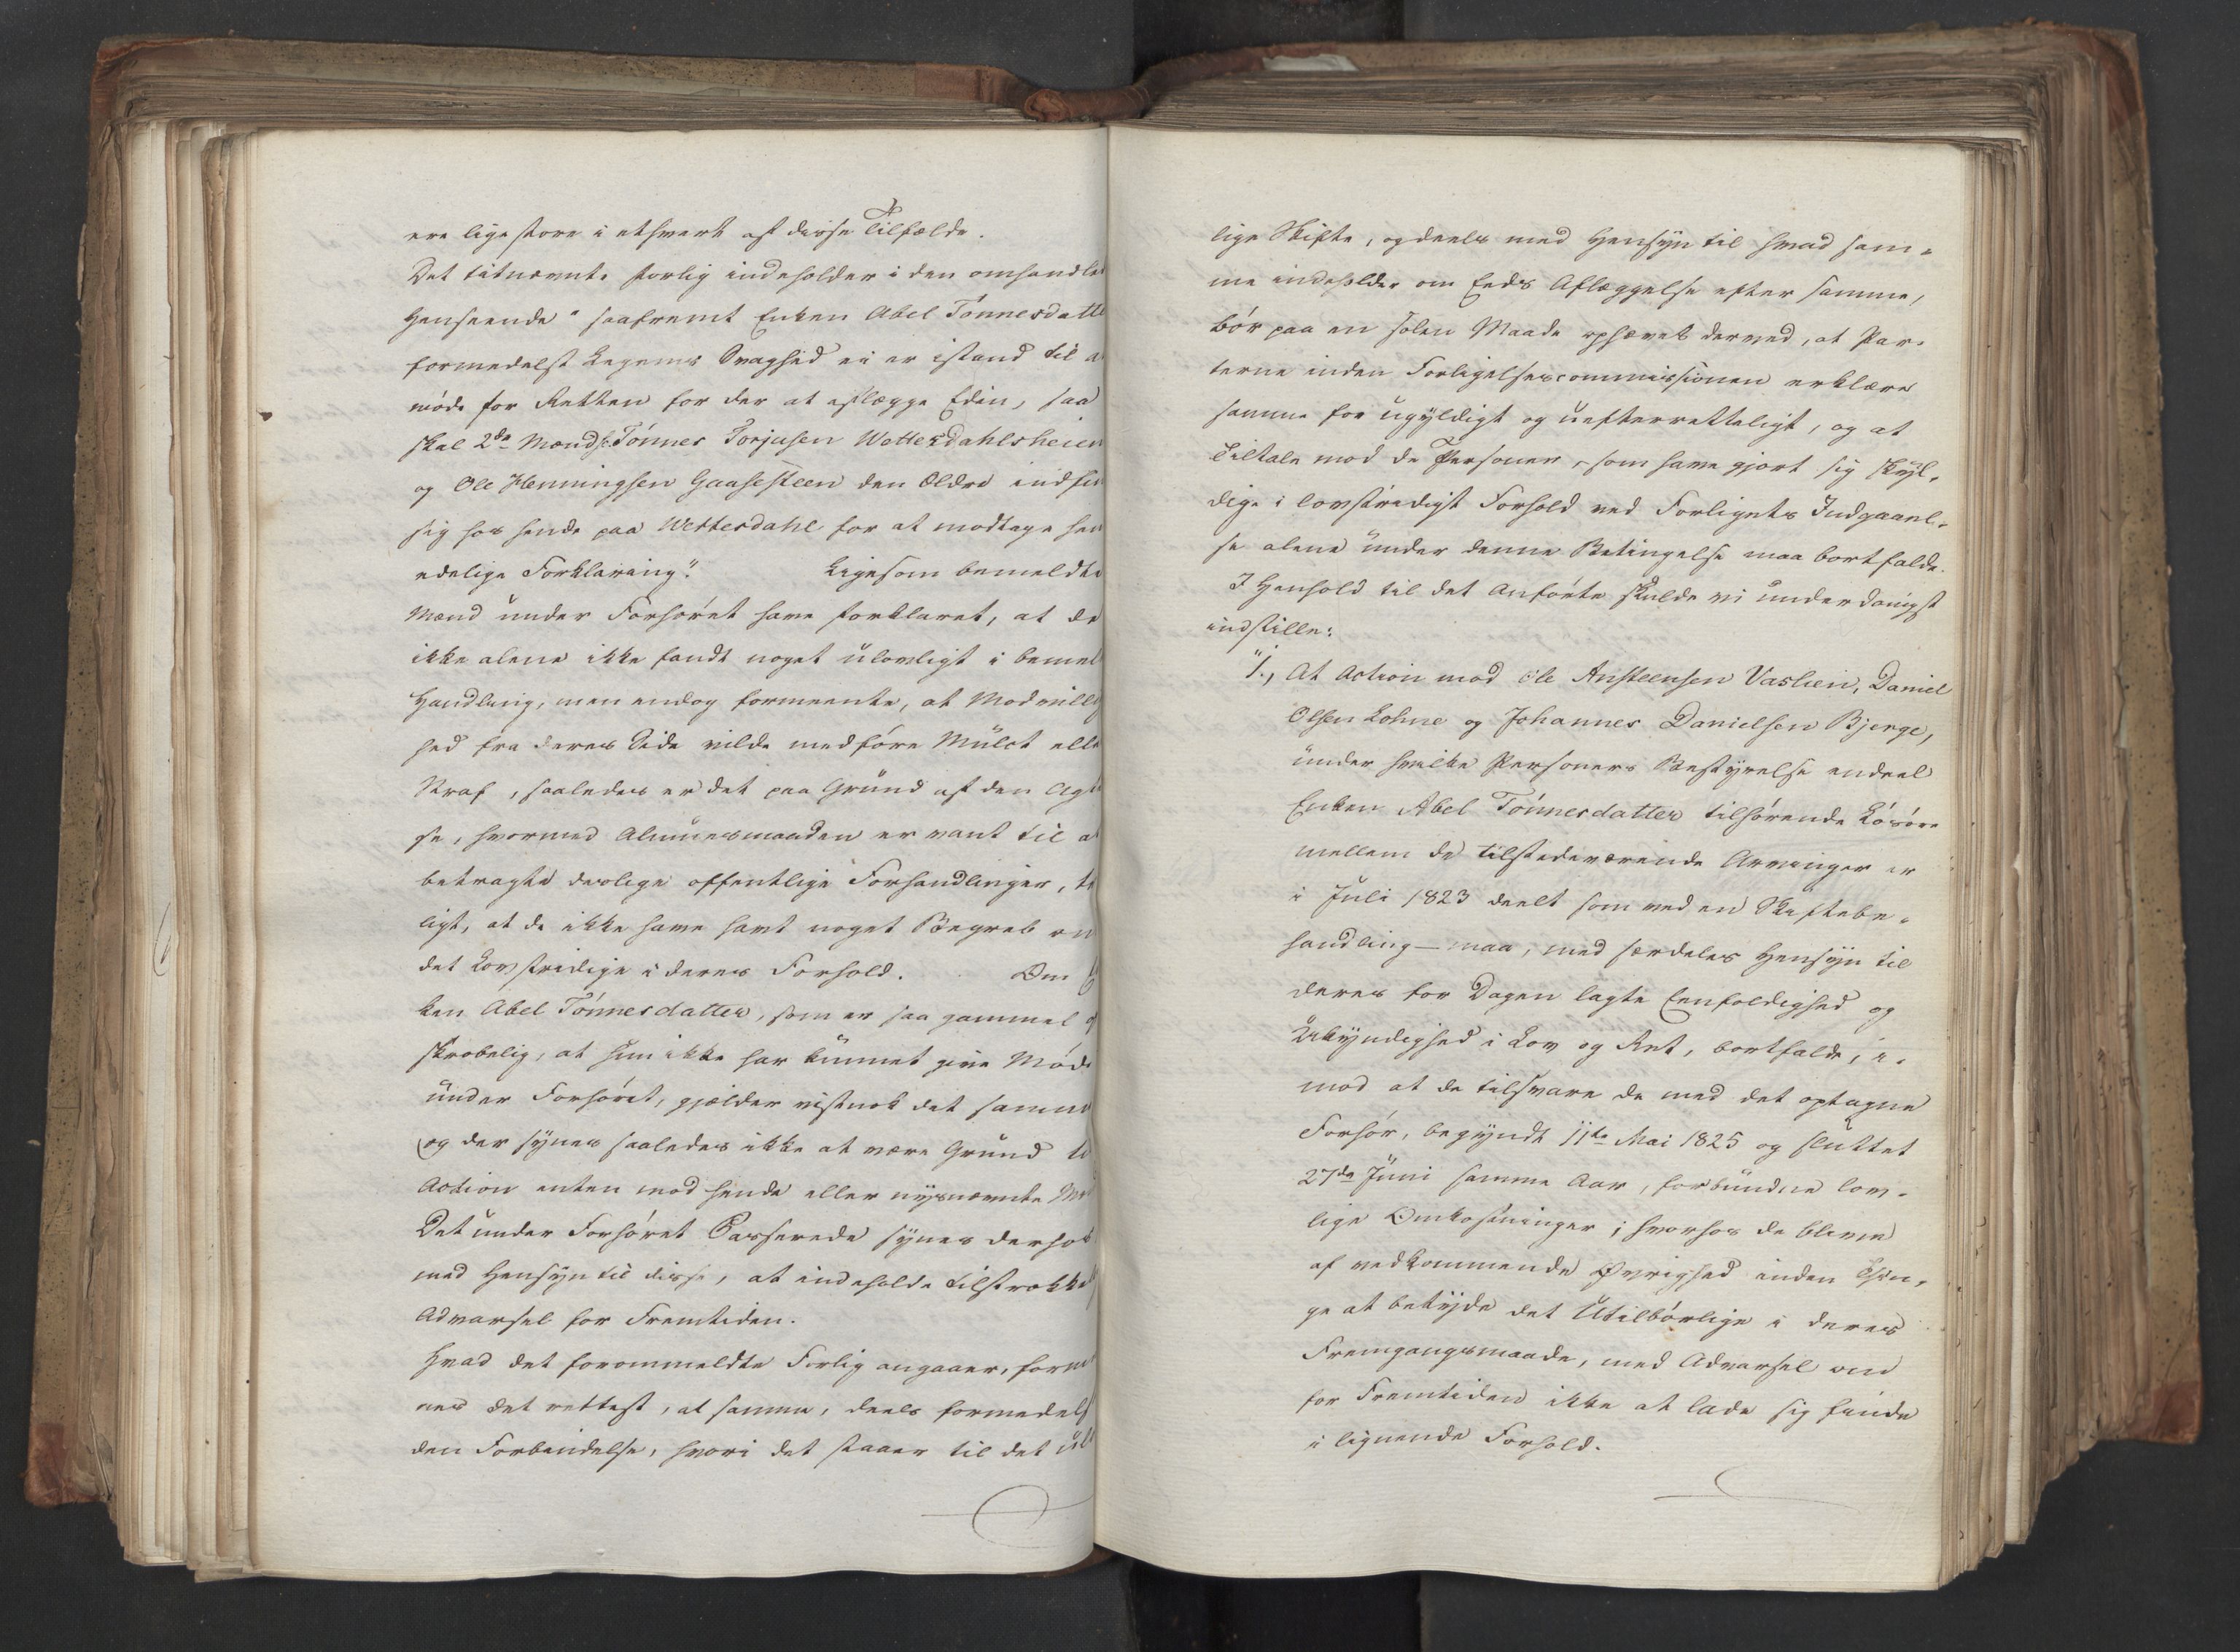 ere lige store i ethvert af disse Tilfælde.
Det titnævnte Forlig indeholder i den omhandle
Henseende "saafremt Enken Abel Tönnesdatte
formedelst Legems Svaghed ei er istand til a
møde for Retten for der at aflægge Eden, saa
skal 2de Mænd Tönnes Torjusen Wettersdahlsheien
og Ole Henningsen Gaasesteen den Ældre indfin
sig hos hende paa Wettersdahl for at modtage hen
edelige Forklaring". Ligesom bemeldte
Mænd under Forhøret have forklaret, at de
ikke alene ikke fandt noget ulovligt i bemel
Handling, men endog formeente, at Modvillig
hed fra deres Side vilde medføre Mulct elle
Straf, saaledes er det paa Grund af den Agt
se, hvormed Almuesmanden er vant til a
betragte deslige offentlige Forhandlinger, ty
ligt, at de ikke have havt noget Begreb om
det Lovstridige i deres Forhold. Om E
ken Abel Tönnesdatter, som er saa gammel og
skrøbelig, at hun ikke har kunnet give Møde
under Forhøret, gjælder vistnok det samme
og der synes saaledes ikke at være Grund til
Action enten mod hende eller nysnævnte Mæ
Det under Forhøret Passerede synes derhos
med Hensyn til disse, at indeholde tilstrække
Advarsel for Fremtiden.
Hvad det forommeldte Forlig angaaer, forme
nes det rettest, at samme, deels formedelst
den Forbindelse, hvori det staaer til det ul
lige Skifte, og deels med Hensyn til hvad sam-
me indeholder om Eeds Aflæggelse efter samme,
bør paa en saadan Maade ophæves derved, at Par-
terne inden Forligelsescommissionen erklære
samme for ugyldigt og uefterretteligt, og at
Tiltale mod de Personer, som have gjort sig skyl-
dige i lovstridigt Forhold ved Forligets Indgaael-
se alene under denne Betingelse maa bortfalde.
I Henhold til det Anførte skulde vi underdanigst
indstille:
"1., At Action mod Ole Ansteensen Vaslien, Daniel
Olsen Lohne og Johannes Danielsen Bjerge,
under hvilke Personers Bestyrelse endeel
Enken Abel Tönnesdatter tilhørende Løsøre
mellem de tilstedeværende Arvinger er
i Juli 1823 deelt som ved en Skiftebe-
handling – maa, med særdeles Hensyn til
deres for Dagen lagte Eenfoldighed og
Ukyndighed i Lov og Ret, bortfalde, i-
mod at de tilsvare de med det optagne
Forhør, begyndt 11te Mai 1825 og sluttet
27de Juni samme Aar, forbundne lov-
lige Omkostninger; hvorhos de bleve
af vedkommende Øvrighed inden Thin-
ge at betyde det Utilbørlige i deres
Fremgangsmaade, med Advarsel om
for Fremtiden ikke at lade sig finde
i lignende Forhold.